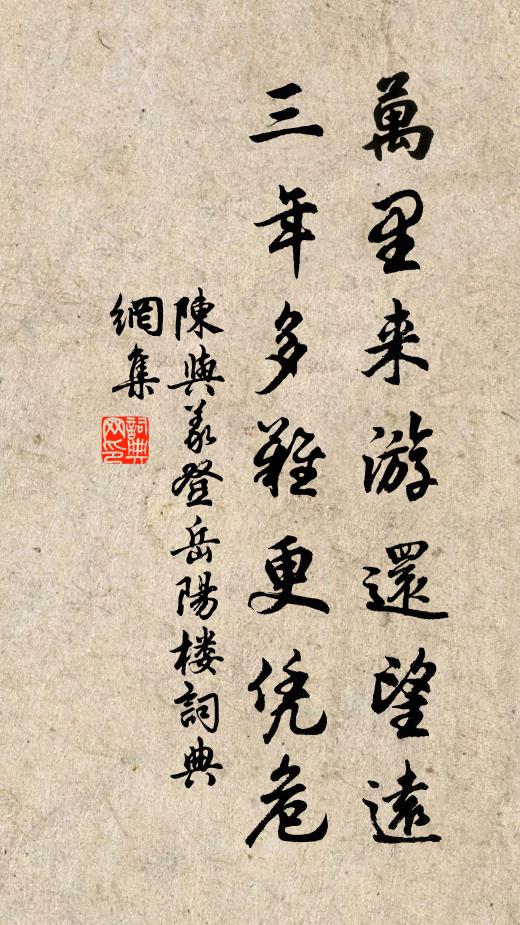 萬里来游還望遠
三年多難更凭危
陳與義登岳陽楼詞典
網集
詞典
网印